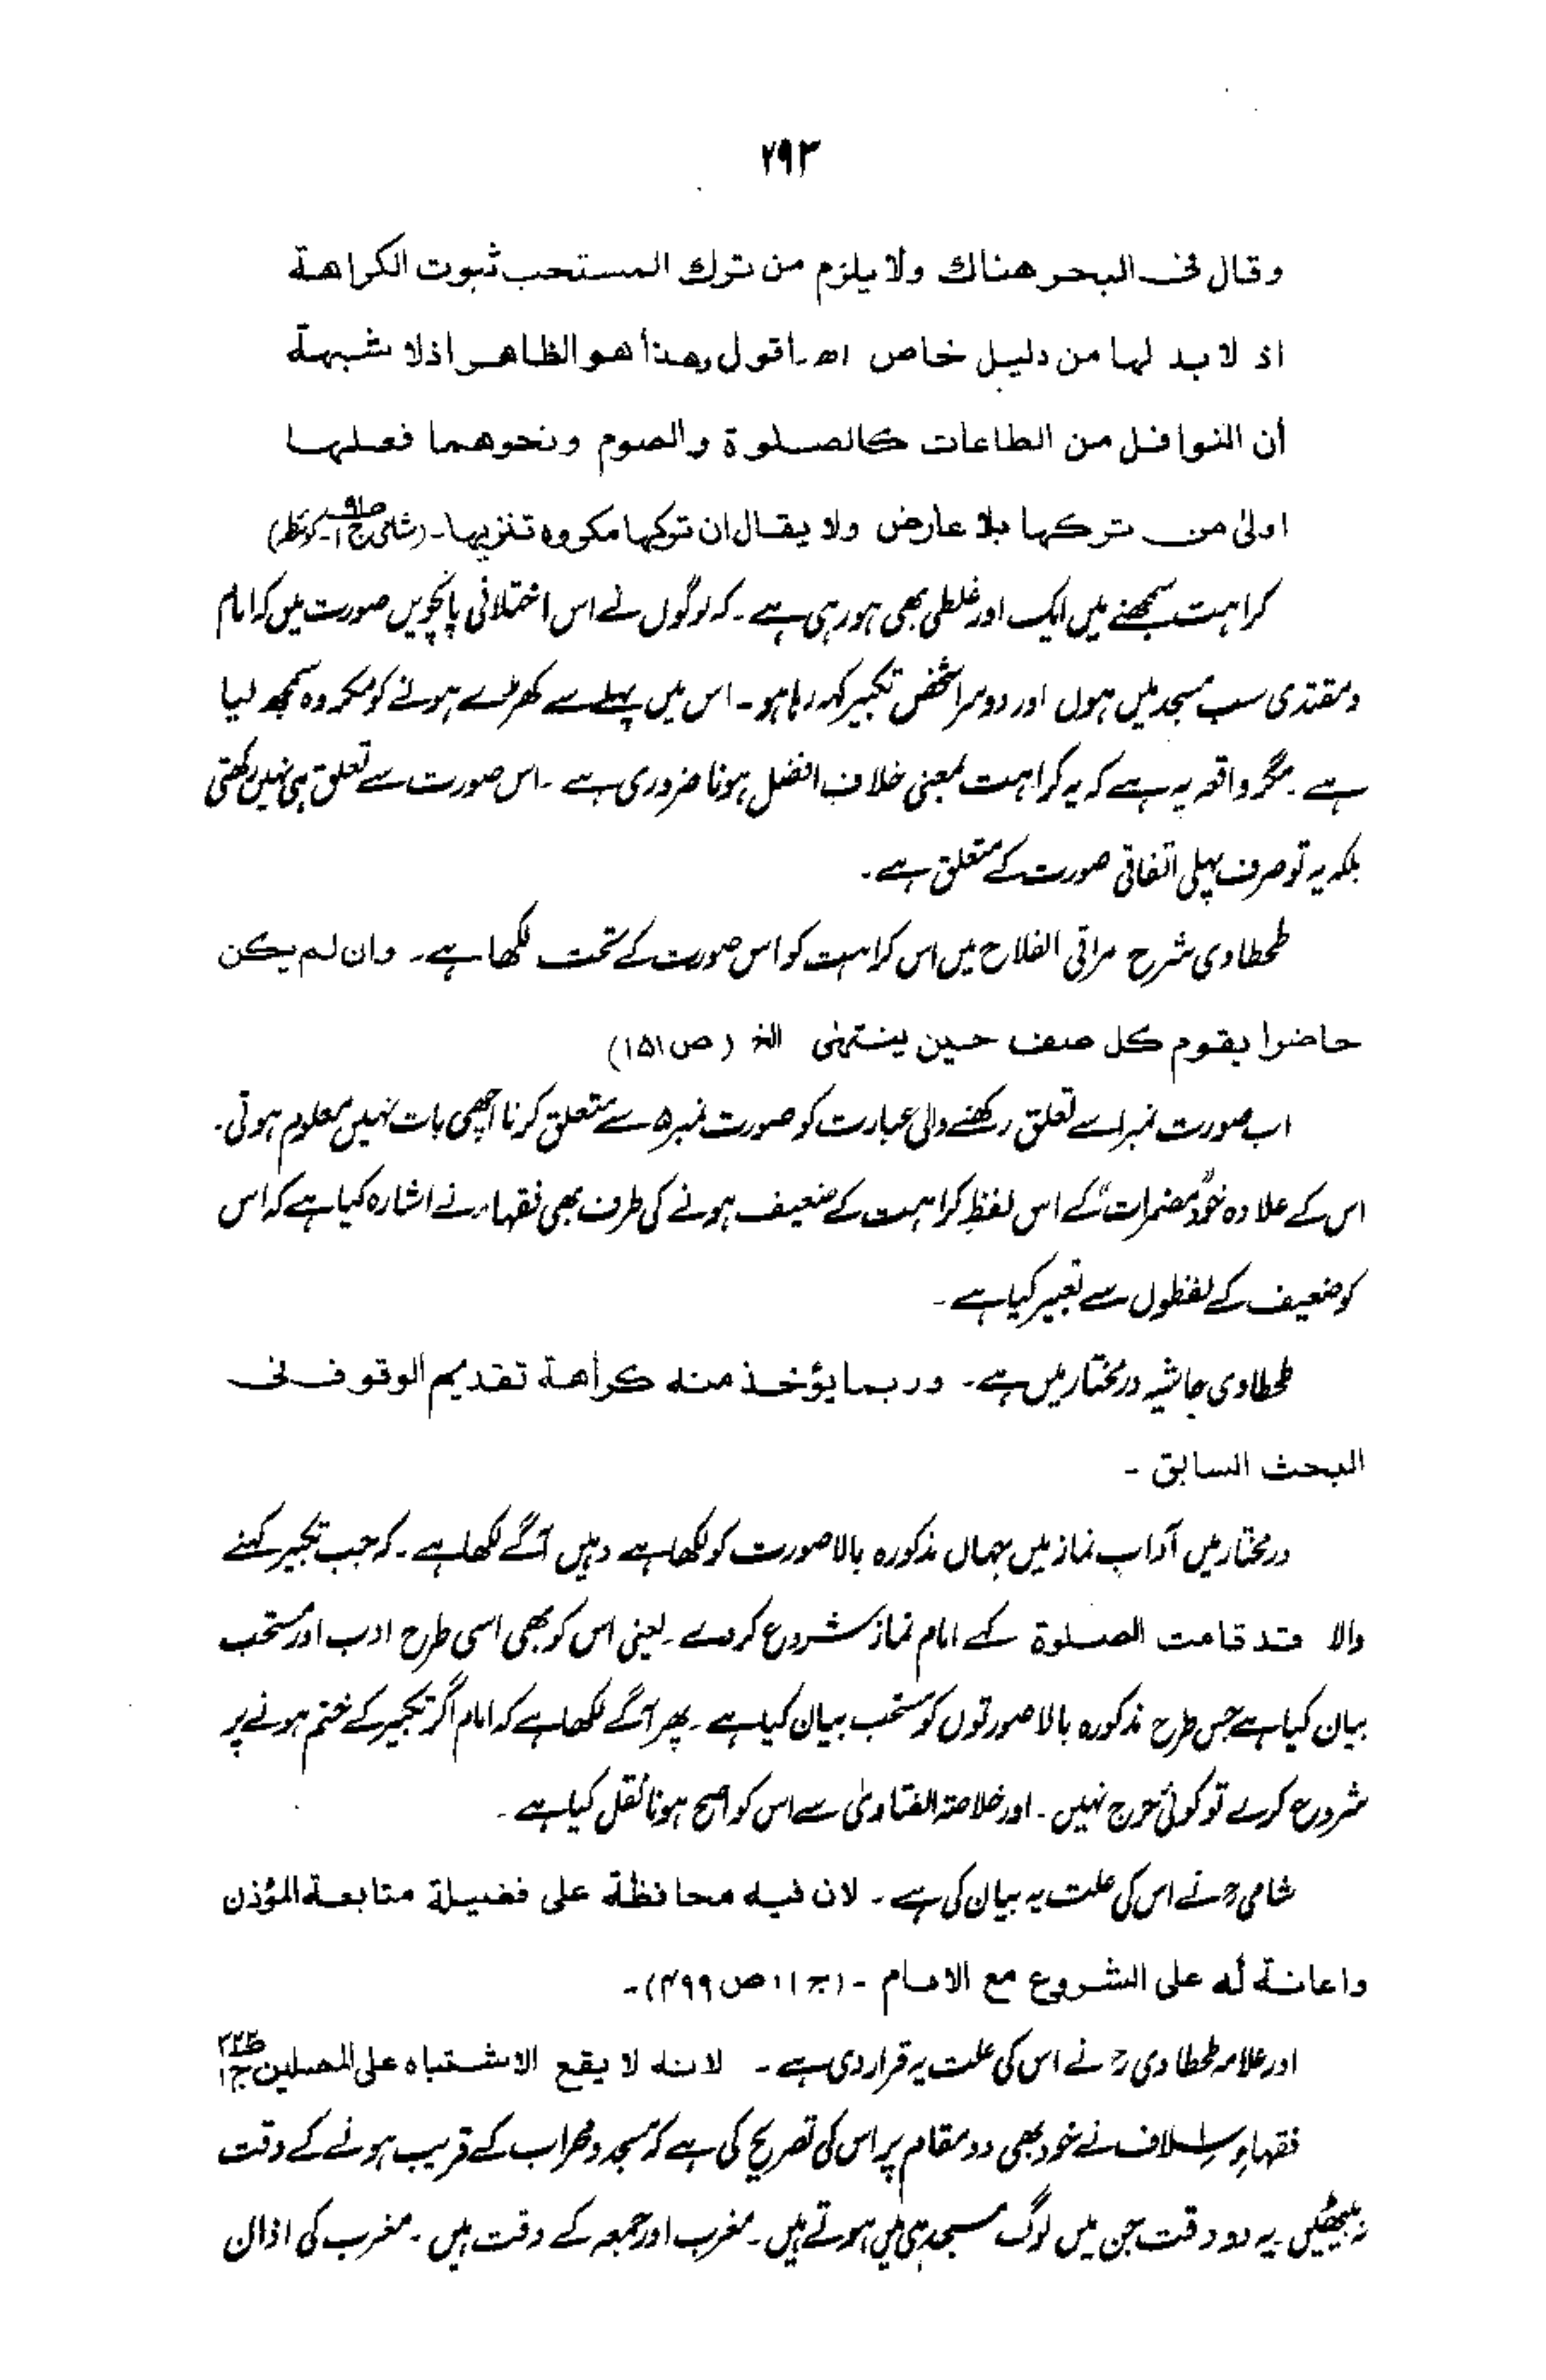 ۲۹۳
وقال فی البحر هناك ولا یلزم من ترك المستحب ثبوت الکراهة
اذ لا بد لها من دلیل خاص اھ۔ أقول وهذا هو الظاهر اذ لا شبهة
أن النوافل من الطاعات کالصلوة والصوم ونحوهما فعلها
اولیٰ من ترکها بلا عارض ولا یقال ان ترکها مکروه تنزیها۔ (شامی ج۱
کراہت سمجھنے میں ایک اور غلطی بھی ہو رہی ہے۔ کہ لوگوں نے اس اختلافی پانچویں صورت میں کہ امام
و مقتدی سب مسجد میں ہوں اور دوسرا شخص تکبیر کہہ رہا ہو۔ اس میں پہلے سے کھڑے ہونے کو مکروہ سمجھ لیا
ہے۔ مگر واقعہ یہ ہے کہ یہ کراہت بمعنی خلاف افضل ہونا ضروری ہے۔ اس صورت سے تعلق ہی نہیں رکھتی
بلکہ یہ تو صرف پہلی اتفاقی صورت کے متعلق ہے۔
طحطاوی شرح مراقی الفلاح میں اس کراہت کو اس صورت کے تحت لکھا ہے۔ وان لم یکن
حاضرا یقوم کل صف حین ینتهی الخ (ص۱۵۱)
اب صورت نمبر۱ سے تعلق رکھنے والی عبارت کو صورت نمبر۵ سے متعلق کرنا اچھی بات نہیں معلوم ہوتی۔
اس کے علاوہ خود "مضمرات" کے اس لفظِ کراہت کے ضعیف ہونے کی طرف بھی فقہاء نے اشارہ کیا ہے کہ اس
کو ضعیف کے لفظوں سے تعبیر کیا ہے۔
طحطاوی حاشیہ درمختار میں ہے۔ وربما یؤخذ منه کراهة تقدیم الوقوف فی
البحث السابق۔
درمختار میں آداب نماز میں جہاں مذکورہ بالا صورت کو لکھا ہے وہیں آگے لکھا ہے۔ کہ جب تکبیر کہنے
والا قد قامت الصلوة کہے امام نماز شروع کر دے۔ یعنی اس کو بھی اسی طرح ادب اور مستحب
بیان کیا ہے جس طرح مذکورہ بالا صورتوں کو مستحب بیان کیا ہے۔ پھر آگے لکھا ہے کہ امام اگر تکبیر کے ختم ہونے پر
شروع کرے تو کوئی حرج نہیں۔ اور خلاصۃ الفتاویٰ سے اس کو اصح ہونا نقل کیا ہے۔
شامیؒ نے اس کی علت یہ بیان کی ہے۔ لان فیه محافظة علی فضیلة متابعة المؤذن
واعانة له علی الشروع مع الامام۔ (ج۱، ص۴۹۹)۔
اور علامہ طحطاویؒ نے اس کی علت یہ قرار دی ہے۔ لانه لا یقع الاشتباه علی المصلین ج۱
فقہاءِ اسلاف نے خود بھی دو مقام پر اس کی تصریح کی ہے کہ مسجد و محراب کے قریب ہونے کے وقت
نہ بیٹھیں۔ یہ دو وقت جن میں لوگ مسجد ہی میں ہوتے ہیں۔ مغرب اور جمعہ کے وقت ہیں۔ مغرب کی اذان